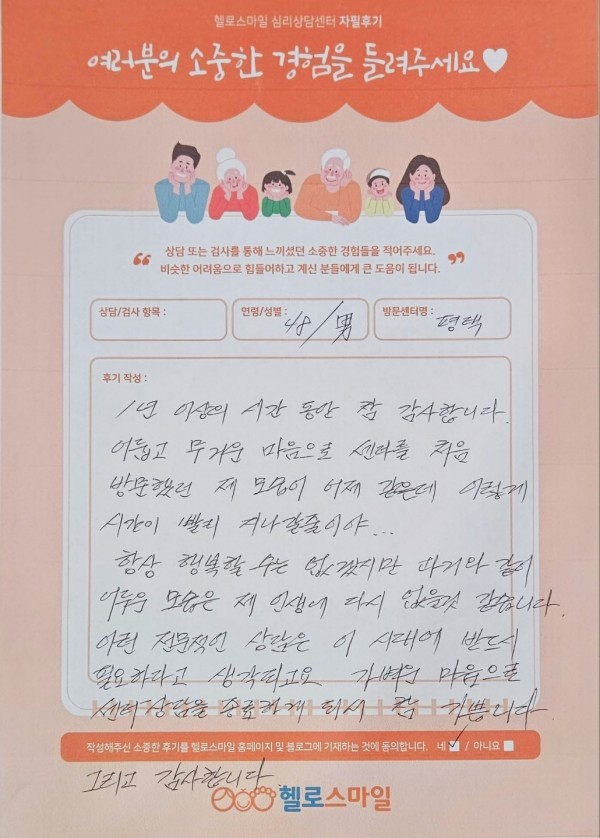 헬로스마일 심리상담센터 자필후기
여러분의 소중한 경험을 들려주세요♥
❝ 상담 또는 검사를 통해 느끼셨던 소중한 경험들을 적어주세요. ❞
비슷한 어려움으로 힘들어하고 계신 분들에게 큰 도움이 됩니다.
상담/검사 항목 :
연령/성별 : 48/男
방문센터명 : 평택
후기 작성 :
1년 이상의 시간 동안 참 감사합니다.
어둡고 무거운 마음으로 센타를 처음
방문했던 제 모습이 어제 같은데 이렇게
시간이 빨리 지나갈줄이야...
항상 행복할 수는 없겠지만 과거와 같이
어두운 모습은 제 인생에 다시 없을것 같습니다.
이런 전문적인 상담은 이 시대에 반드시
필요하다고 생각되고요 가벼운 마음으로
센터상담을 종료하게 되서 참 기쁩니다.
작성해주신 소중한 후기를 헬로스마일 홈페이지 및 블로그에 기재하는 것에 동의합니다. 네 ✓ / 아니요
그리고 감사합니다
헬로스마일